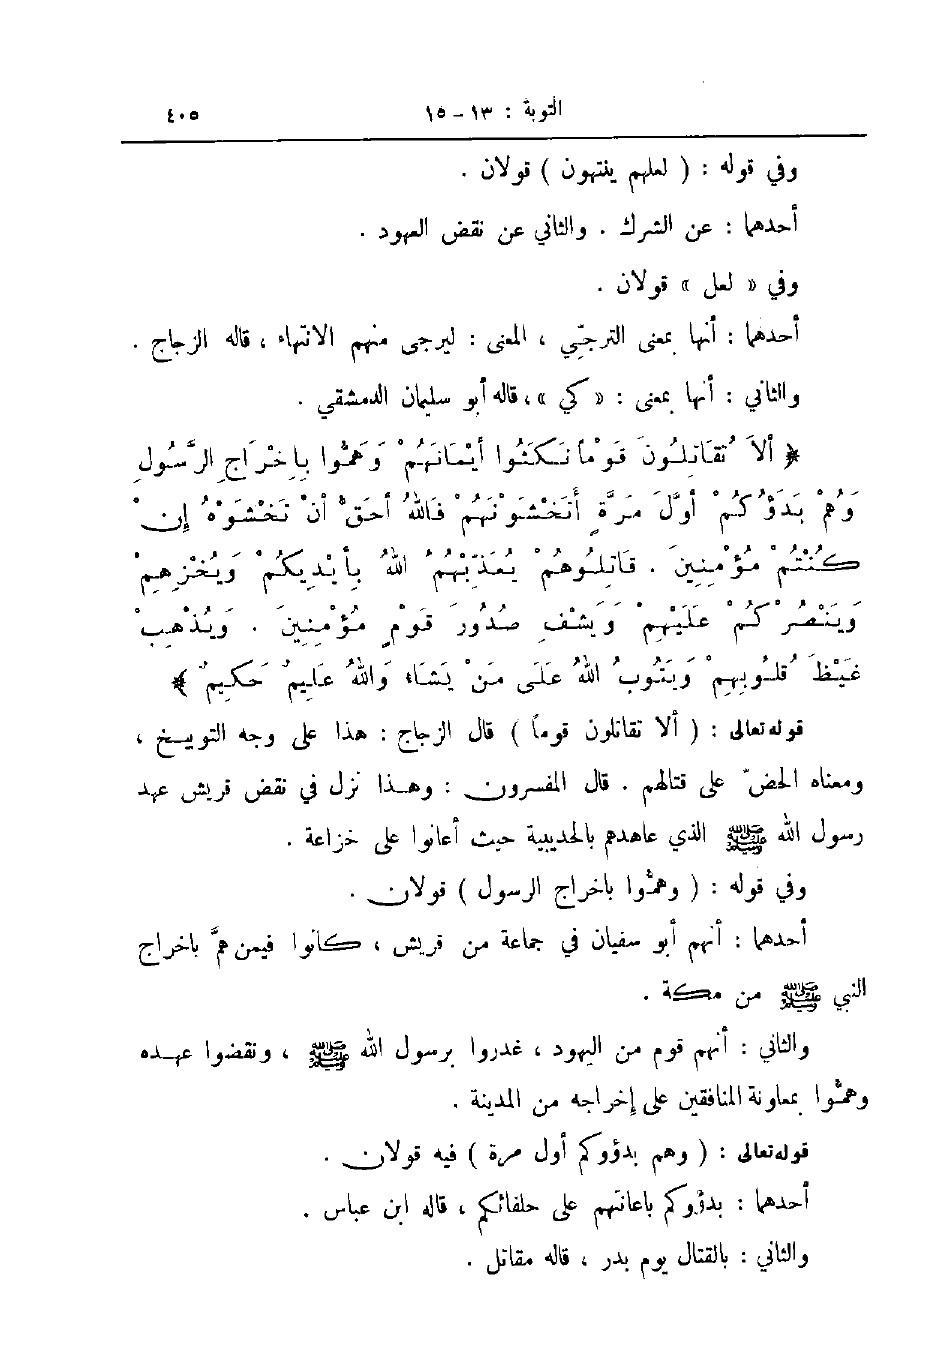 التوبة : ١٣ - ١٥ ٤٠٥
وفي قوله : ( لعلهم ينتهون ) قولان .
أحدهما : عن الشرك . والثاني عن نقض العهود .
وفي « لعل » قولان .
أحدهما : أنها بمعنى الترجّي ، المعنى : ليرجى منهم الانتهاء ، قاله الزجاج .
والثاني : أنها بمعنى : « كي » ، قاله أبو سليمان الدمشقي .
﴿ أَلاَ تُقَاتِلُونَ قَوْماً نَكَثُوا أَيْمَانَهُمْ وَهَمُّوا بِإِخْرَاجِ الرَّسُولِ
وَهُمْ بَدَؤُكُمْ أَوَّلَ مَرَّةٍ أَتَخْشَوْنَهُمْ فَاللهُ أَحَقُّ أَنْ تَخْشَوْهُ إِنْ
كُنْتُمْ مُؤْمِنِينَ . قَاتِلُوهُمْ يُعَذِّبْهُمُ اللهُ بِأَيْدِيكُمْ وَيُخْزِهِمْ
وَيَنْصُرْكُمْ عَلَيْهِمْ وَيَشْفِ صُدُورَ قَوْمٍ مُؤْمِنِينَ . وَيُذْهِبْ
غَيْظَ قُلُوبِهِمْ وَيَتُوبُ اللهُ عَلَى مَنْ يَشَاءُ وَاللهُ عَلِيمٌ حَكِيمٌ ﴾
قوله تعالى : ( ألا تقاتلون قوماً ) قال الزجاج : هذا على وجه التوبيخ ،
ومعناه الحضّ على قتالهم . قال المفسرون : وهذا نزل في نقض قريش عهد
رسول الله ﷺ الذي عاهدهم بالحديبية حيث أعانوا على خزاعة .
وفي قوله : ( وهمُّوا باخراج الرسول ) قولان .
أحدهما : أنهم أبو سفيان في جماعة من قريش ، كانوا فيمن همَّ باخراج
النبي ﷺ من مكة .
والثاني : أنهم قوم من اليهود ، غدروا برسول الله ﷺ ، ونقضوا عهده
وهمُّوا بمعاونة المنافقين على إخراجه من المدينة .
قوله تعالى : ( وهم بدؤوكم أول مرة ) فيه قولان .
أحدهما : بدؤوكم باعانتهم على حلفائكم ، قاله ابن عباس .
والثاني : بالقتال يوم بدر ، قاله مقاتل .